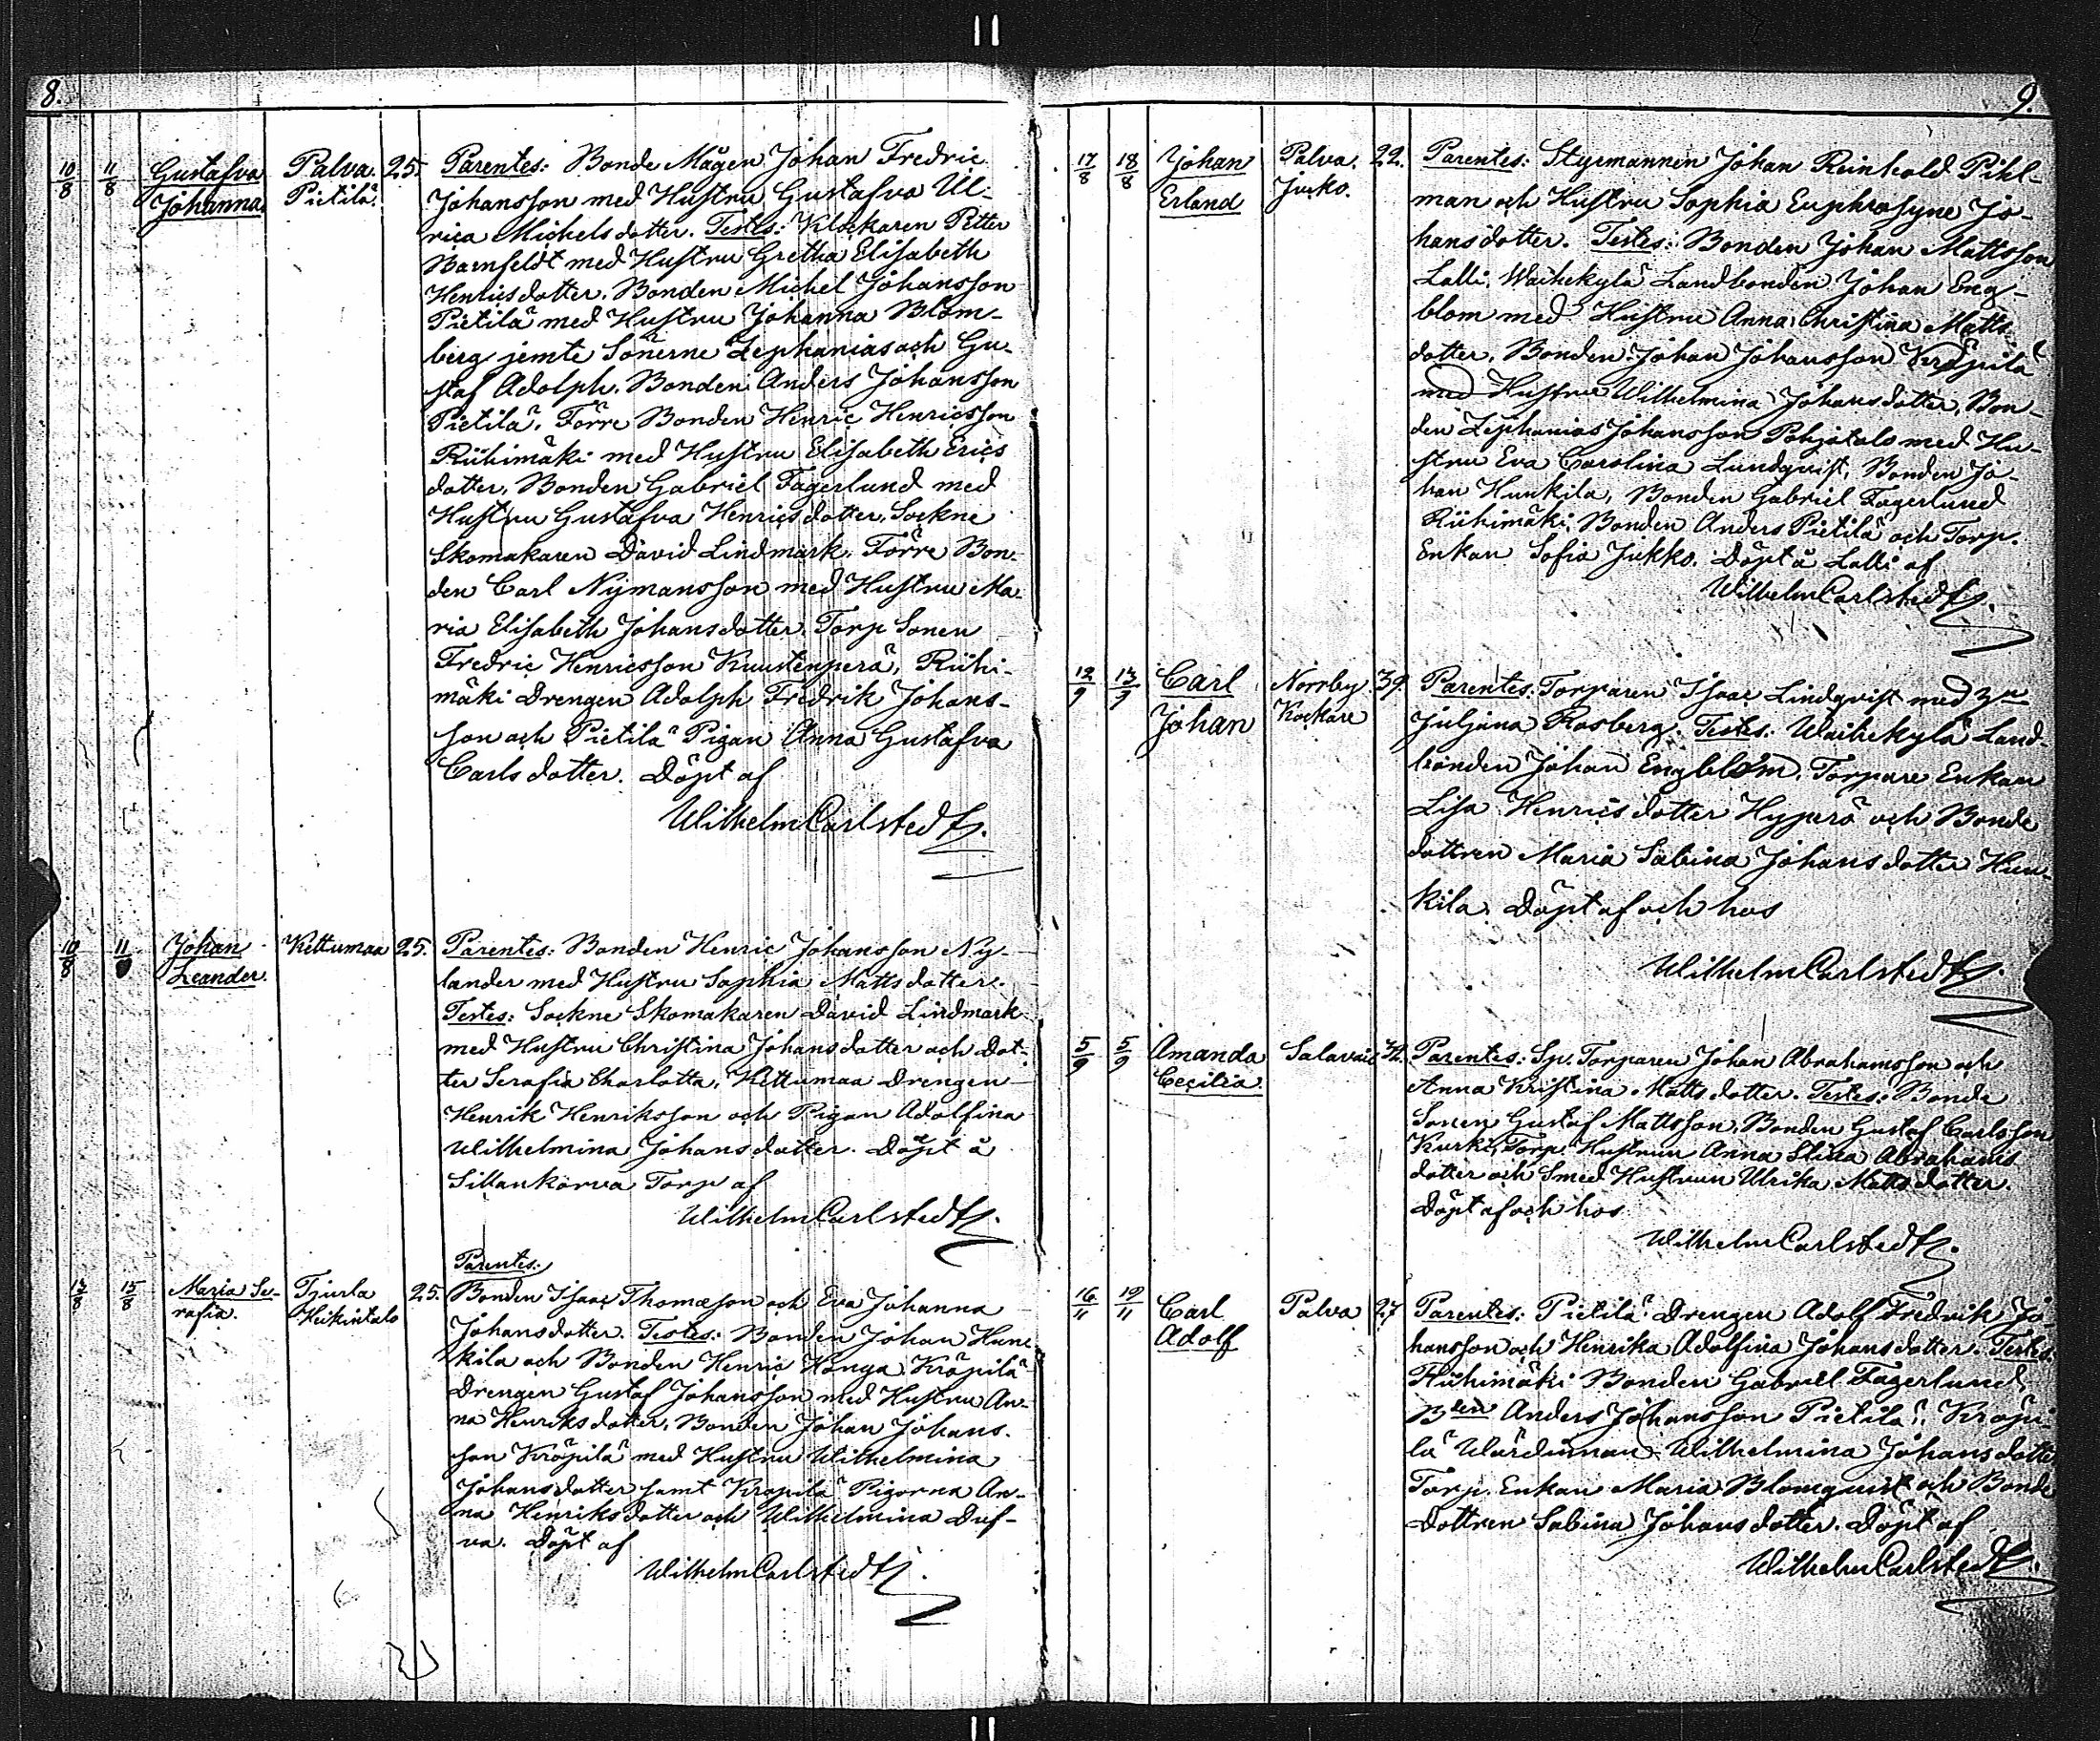 8.
10/8 11/8 Gustafva Johanna Palva. Pietilä. 25.
Parentes: Bonde Mågen Johan Fredric
Johansson med Hustru Gustafva Ul-
rica Michelsdotter. Testes: Klockaren Petter
Barnfeldt med Hustru Gretha Elisabeth
Henricsdotter. Bonden Michel Johansson
Pietilä med Hustru Johanna Blom-
berg jemte Sönerne Zephanias och Gu-
staf Adolph. Bonden Anders Johansson
Pietilä. Förre Bonden Henric Henricsson
Riihimäki med Hustru Elisabeth Erics
dotter, Bonden Gabriel Fagerlund med
Hustru Gustafva Henricsdotter, Sockne
Skomakaren David Lindmark. Förre Bon-
den Carl Nymansson med Hustru Ma-
ria Elisabeth Johansdotter. Torp Sonen
Fredric Henricsson Kuustenperä, Riihi-
mäki Drengen Adolph Fredrik Johans-
son och Pietilä Pigan Anna Gustafva
Carlsdotter. Döpt af
Wilhelm Carlstedt.
10/8 11 Johan Leander. Kettumaa 25.
Parentes: Bonden Henric Johansson Ny-
lander med Hustru Sophia Mattsdotter.
Testes: Sockne Skomakaren David Lindmark
med Hustru Christina Johansdotter och Dot-
ter Serafia Charlotta, Kettumaa Drengen
Henrik Henriksson och Pigan Adolfina
Wilhelmina Johansdotter. Döpt å
Sillankorva Torp af
Wilhelm Carlstedt.
13/8 15/8 Maria Se-rafia. Tjurla Heikintalo 25.
Parentes:
Bonden Isaac Thomasson och Eva Johanna
Johansdotter. Testes: Bonden Johan Hun-
kila och Bonden Henric Konga. Kröpilä
Drengen Gustaf Johansson med Hustru An-
na Henriksdotter, Bonden Johan Johans-
son Kröpilä med Hustru Wilhelmina
Johansdotter samt Kröpilä Pigorna An-
na Henriksdotter och Wilhelmina Duf-
va. Döpt af
Wilhelm Carlstedt.
9.
17/8 18/8 Johan Erland Palva. Jukko. 22.
Parentes: Styrmannen Johan Reinhold Pihl-
man och Hustru Sophia Euphrosyne Jo-
hansdotter. Testes: Bonden Johan Mattsson
Lalli, Waihekylä Landbonden Johan Eng-
blom med Hustru Anna Christina Matts-
dotter, Bonden Johan Johansson Kröpilä
med Hustru Wilhelmina Johansdotter, Bon-
den Zephanias Johansson Pohjotalo med Hu-
stru Eva Carolina Lundqvist, Bonden Jo-
han Hunkila, Bonden Gabriel Fagerlund
Riihimäki, Bonden Anders Pietilä och Torp.
Enkan Sofia Jukko. Döpt å Lalli af
Wilhelm Carlstedt.
12/9 13/9 Carl Johan Norrby Kockare 39.
Parentes: Torparen Isaac Lindqvist med
Juljana Rosberg. Testes: Waihekylä Land-
bonden Johan Engblom. Torpare Enkan
Lisa Henricsdotter Hyperö och Bonde
dottren Maria Sabina Johansdotter Hun-
kila. Döpt af och hos
Wilhelm Carlstedt.
5/9 5/9 Amanda Cecilia. Salavais 32.
Parentes: Sp. Torparen Johan Abrahamsson och
Anna Kristina Mattsdotter. Testes: Bonde
Sonen Gustaf Mattsson, Bonden Gustaf Carlsson
Kurki, Torp. Hustrun Anna Stina Abrahams
dotter och Smed Hustrun Ulrika Mattsdotter.
Döpt af och hos
Wilhelm Carlstedt.
16/11 19/11 Carl Adolf Palva 27
Parentes: Pietilä Drengen Adolf Fredrik Jo-
hansson och Henrika Adolfina Johansdotter. Testes:
Riihimäki Bonden Gabriel Fagerlund,
Bden Anders Johansson Pietilä. Kröpi-
lä Wärdinnan Wilhelmina Johansdotter
Torp. Enkan Maria Blomqvist och Bonde
Dottren Sabina Johansdotter. Döpt af
Wilhelm Carlstedt.